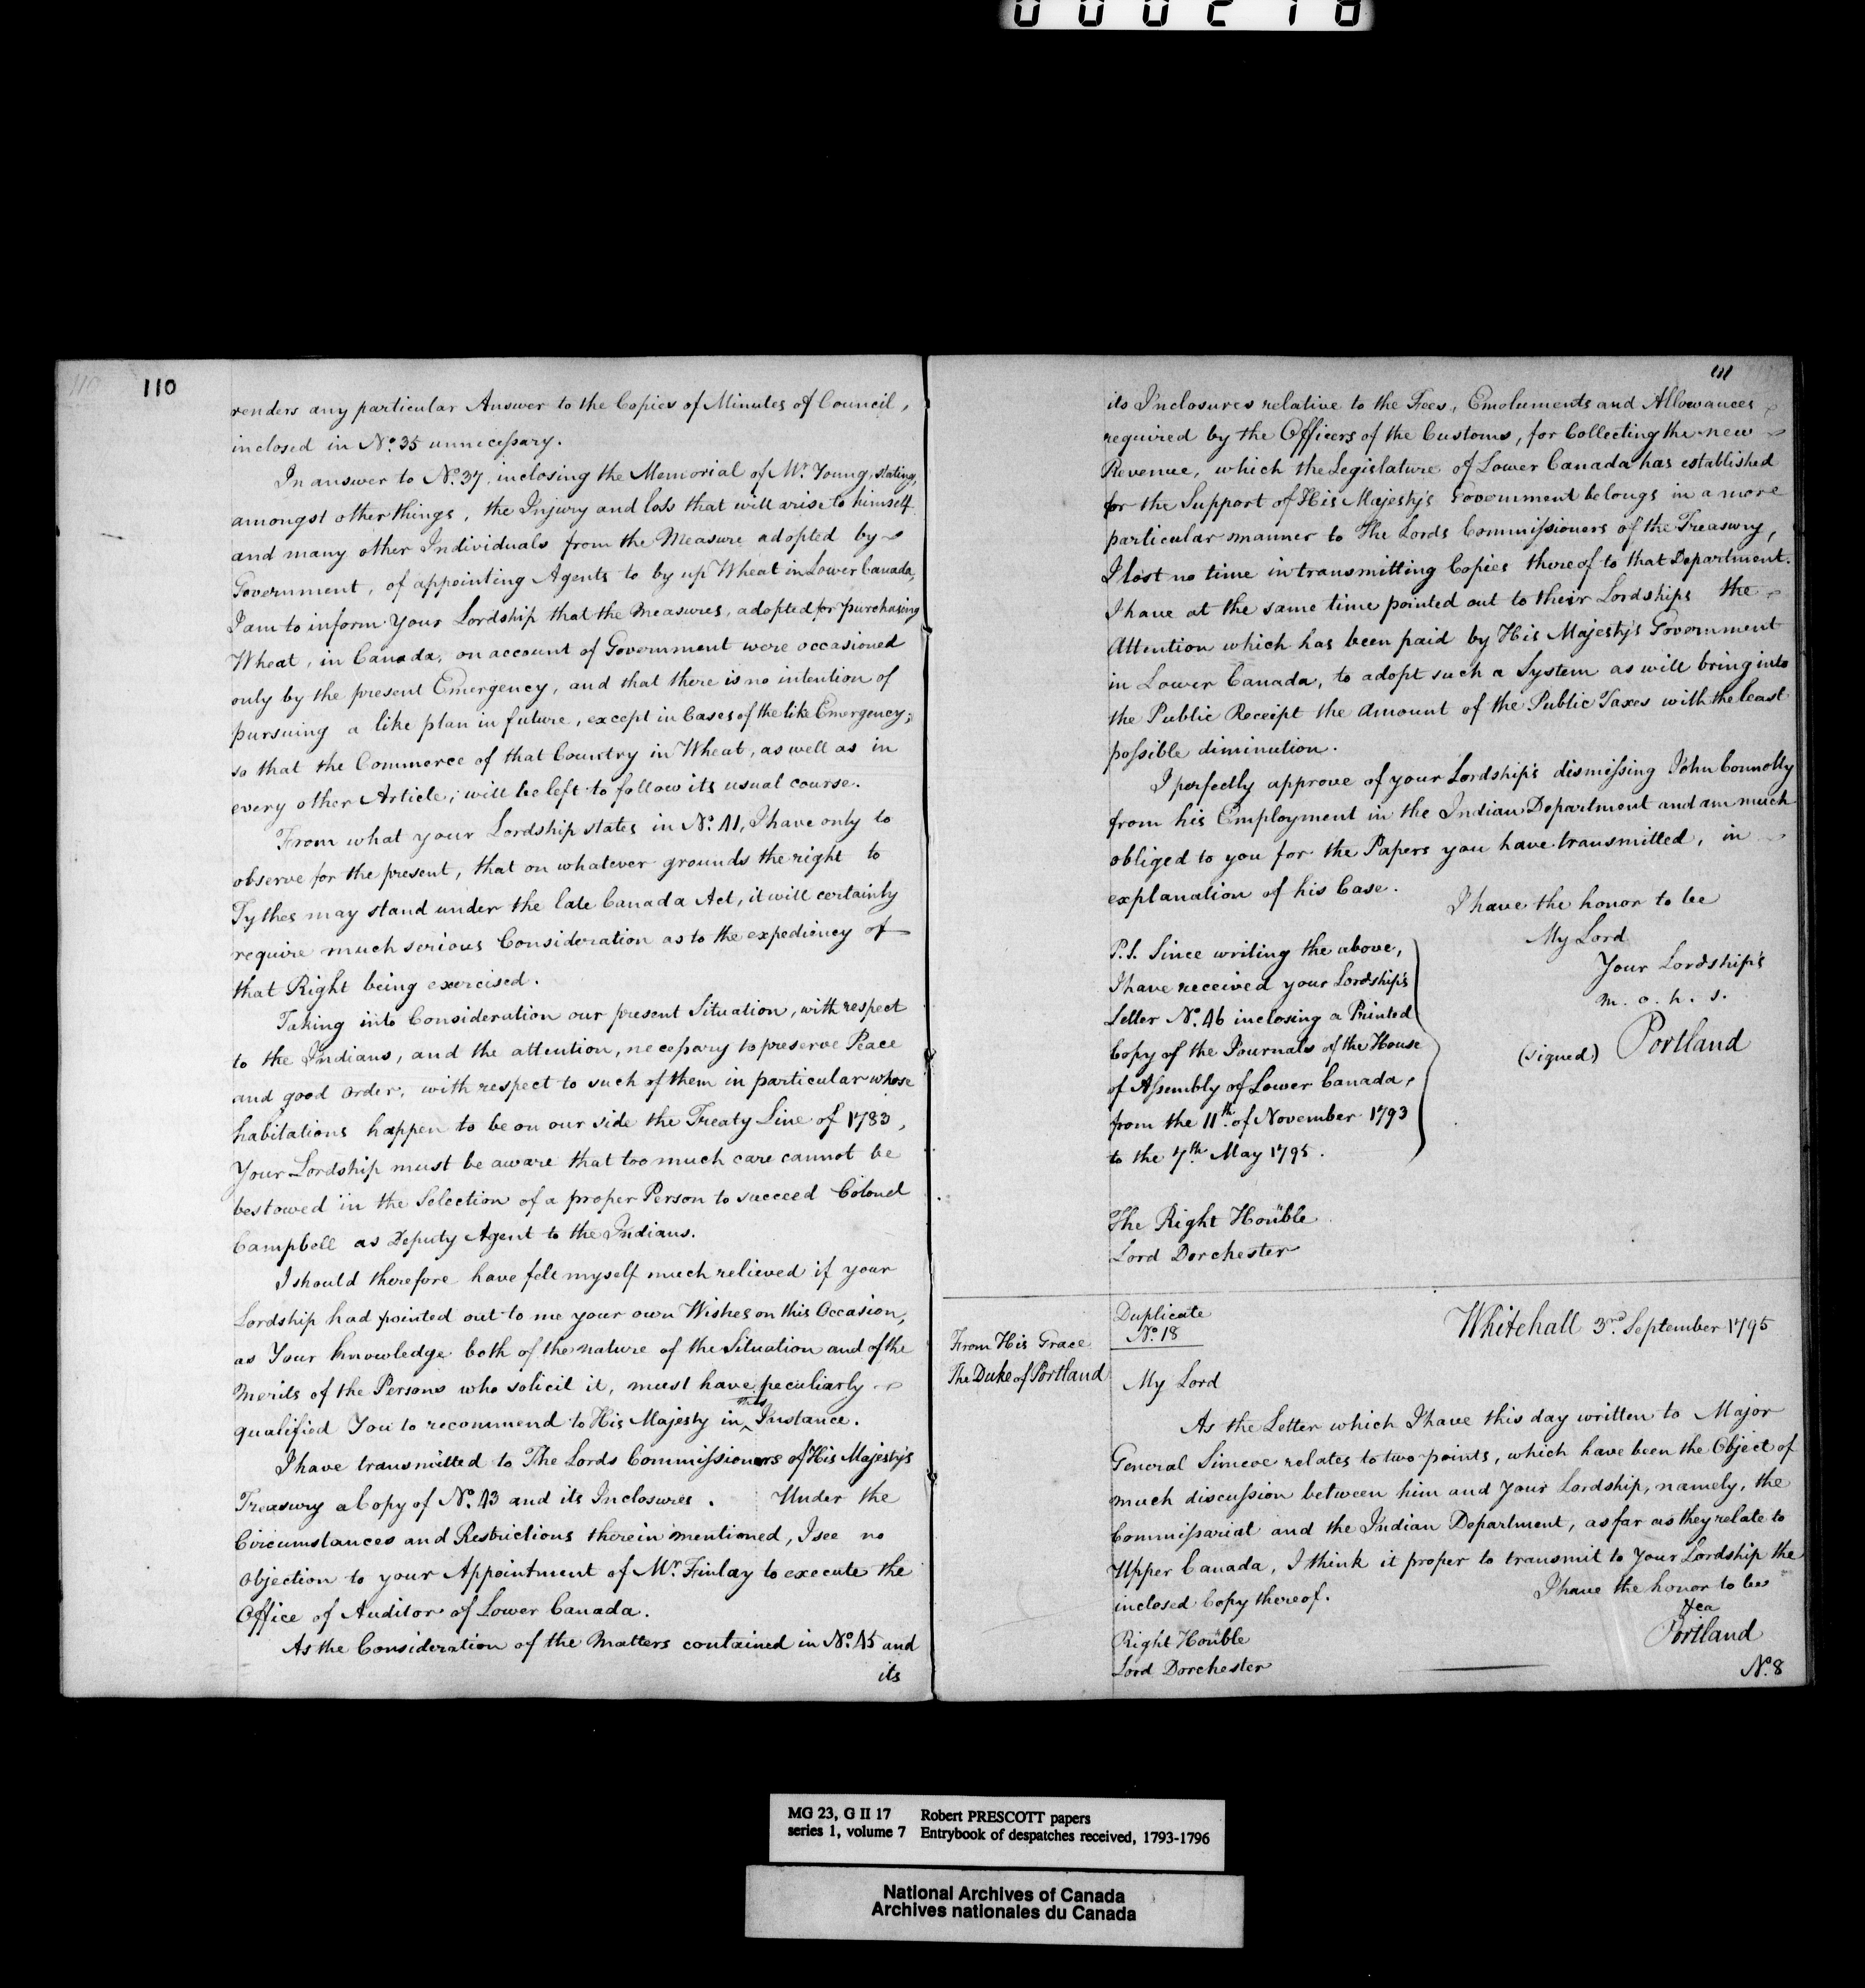 000218
110
renders any particular Answer to the Copies of Minutes of Council,
inclosed in No. 35 unnecessary.
In answer to No. 37. inclosing the Memorial of Mr. Young, stating,
amongst other things, the Injury and loss that will arise to himself
and many other Individuals from the Measure adopted by
Government, of appointing Agents to by up Wheat in Lower Canada,
I am to inform Your Lordship that the Measures, adopted for purchasing
Wheat, in Canada, on account of Government were occasioned
only by the present Emergency, and that there is no intention of
pursuing a like plan in future, except in Cases of the like Emergency;
so that the Commerce of that Country in Wheat, as well as in
every other Article, will be left to follow its usual course.
From what your Lordship states in No. 41, I have only to
observe for the present, that on whatever grounds the right to
Tythes may stand under the late Canada Act, it will certainly
require much serious Consideration as to the expediency of
that Right being exercised.
Taking into Consideration our present Situation, with respect
to the Indians, and the attention, necessary to preserve Peace
and good order, with respect to such of them in particular whose
habitations happen to be on our side the Treaty Line of 1783,
Your Lordship must be aware that too much care cannot be
bestowed in the Selection of a proper Person to succeed Colonel
Campbell as Deputy Agent to the Indians.
I should therefore have felt myself much relieved if your
Lordship had pointed out to me your own Wishes on this Occasion,
as Your knowledge both of the nature of the Situation and of the
Merits of the Persons who solicit it, must have peculiarly
qualified You to recommend to His Majesty in this Instance.
I have transmitted to The Lords Commissioners of His Majesty's
Treasury a Copy of No. 43 and its Inclosures. Under the
Circumstances and Restrictions therein mentioned, I see no
Objection to your Appointment of Mr. Finlay to execute the
Office of Auditor of Lower Canada.
As the Consideration of the Matters contained in No. 45 and
its
111
its Inclosures relative to the Fees, Emoluments and Allowances
required by the Officers of the Customs, for Collecting the new
Revenue, which the Legislature of Lower Canada has established
for the Support of His Majesty's Government belongs in a more
particular manner to The Lords Commissioners of the Treasury,
I lost no time in transmitting Copies thereof to that Department.
I have at the same time pointed out to their Lordships the
Attention which has been paid by His Majesty's Government
in Lower Canada, to adopt such a System as will bring into
the Public Receipt the Amount of the Public Taxes with the least
possible diminution.
I perfectly approve of your Lordship's dismissing John Connolly
from his Employment in the Indian Department and am much
obliged to you for the Papers you have transmitted, in
explanation of his Case.
I have the honor to be
My Lord
Your Lordship's
m. o. h. s.
(signed) Portland
P.S. Since writing the above,
I have received your Lordship's
Letter No. 46 inclosing a Printed
Copy of the Journals of the House
of Assembly of Lower Canada,
from the 11th of November 1793
to the 7th May 1795.
The Right Honble
Lord Dorchester
From His Grace
The Duke of Portland
Duplicate
No. 18
Whitehall 3rd September 1795
My Lord
As the Letter which I have this day written to Major
General Simcoe relates to two points, which have been the Object of
much discussion between him and Your Lordship, namely, the
Commissariat and the Indian Department, as far as they relate to
Upper Canada, I think it proper to transmit to Your Lordship the
inclosed Copy thereof.
I have the honor to be
&ca
Portland
Right Honble
Lord Dorchester
No. 8
MG 23, G II 17 Robert PRESCOTT papers
series 1, volume 7 Entrybook of despatches received, 1793-1796
National Archives of Canada
Archives nationales du Canada